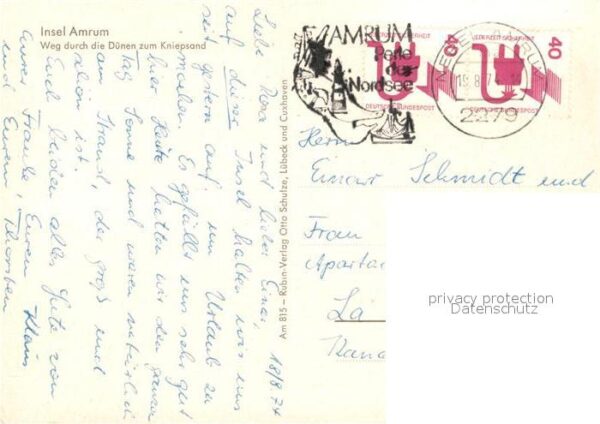 Insel Amrum
Weg durch die Dünen zum Kniepsand
18/8.74
Liebe Nora und lieber Einar,
auf dieser Insel halten wir uns
seit gestern auf, um Urlaub zu
machen. Es gefällt uns sehr gut
hier. Heute hatten wir den ganzen
Tag Sonne und waren natürlich
am Strand, der groß und
allein ist.
Euch beiden alles Gute von
Eurer Frauke, Eurem Klaus
und Eurem Thorsten
Am 815 – Rubin-Verlag Otto Schulze, Lübeck und Cuxhaven
AMRUM
Perle
der
Nordsee
JEDERZEIT SICHERHEIT
40
DEUTSCHE BUNDESPOST
JEDERZEIT SICHERHEIT
40
DEUTSCHE BUNDESPOST
NEBEL, AMRUM
2279
Herrn
Einar Schmidt und
Frau
La
privacy protection
Datenschutz